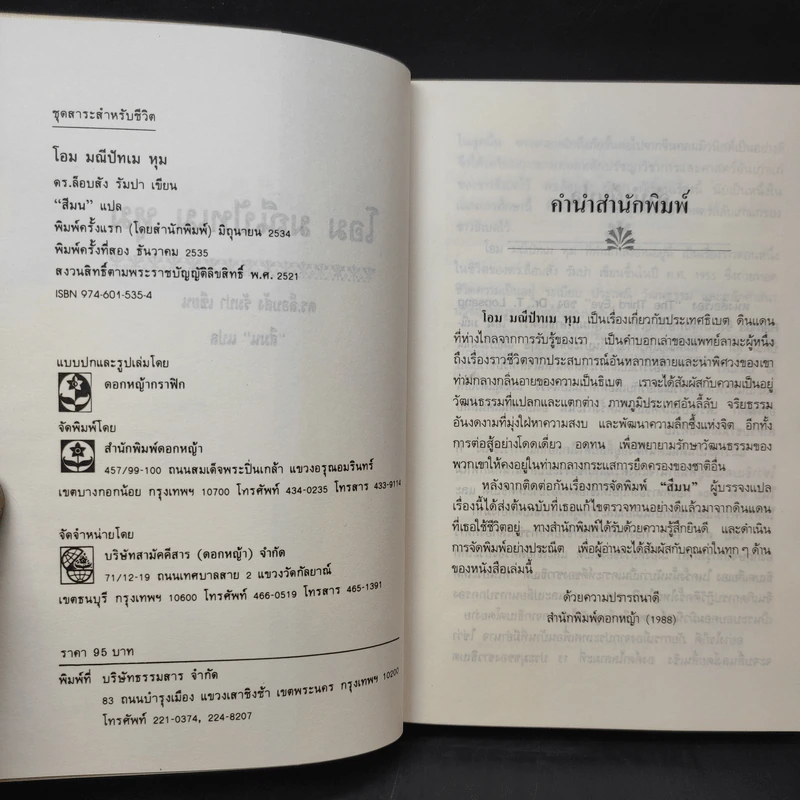 ชุดสาระสำหรับชีวิต
โอม มณีปัทเม หุม
ดร.ล็อบสัง รัมปา เขียน
“สีมน” แปล
พิมพ์ครั้งแรก (โดยสำนักพิมพ์) มิถุนายน 2534
พิมพ์ครั้งที่สอง ธันวาคม 2535
สงวนสิทธิ์ตามพระราชบัญญัติลิขสิทธิ์ พ.ศ. 2521
ISBN 974-601-535-4
แบบปกและรูปเล่มโดย
ดอกหญ้ากราฟิก
จัดพิมพ์โดย
สำนักพิมพ์ดอกหญ้า
457/99-100 ถนนสมเด็จพระปิ่นเกล้า แขวงอรุณอมรินทร์
เขตบางกอกน้อย กรุงเทพฯ 10700 โทรศัพท์ 434-0235 โทรสาร 433-9114
จัดจำหน่ายโดย
บริษัทสามัคคีสาร (ดอกหญ้า) จำกัด
71/12-19 ถนนเทศบาลสาย 2 แขวงวัดกัลยาณ์
เขตธนบุรี กรุงเทพฯ 10600 โทรศัพท์ 466-0519 โทรสาร 465-1391
ราคา 95 บาท
พิมพ์ที่ บริษัทธรรมสาร จำกัด
83 ถนนบำรุงเมือง แขวงเสาชิงช้า เขตพระนคร กรุงเทพฯ 10200
โทรศัพท์ 221-0374, 224-8207
คำนำสำนักพิมพ์
โอม มณีปัทเม หุม เป็นเรื่องเกี่ยวกับประเทศธิเบต ดินแดน
ที่ห่างไกลจากการรับรู้ของเรา เป็นคำบอกเล่าของแพทย์ลามะผู้หนึ่ง
ถึงเรื่องราวชีวิตจากประสบการณ์อันหลากหลายและน่าพิศวงของเขา
ท่ามกลางกลิ่นอายของความเป็นธิเบต เราจะได้สัมผัสกับความเป็นอยู่
วัฒนธรรมที่แปลกและแตกต่าง ภาพภูมิประเทศอันลี้ลับ จริยธรรม
อันงดงามที่มุ่งใฝ่หาความสงบ และพัฒนาความลึกซึ้งแห่งจิต อีกทั้ง
การต่อสู้อย่างโดดเดี่ยว อดทน เพื่อพยายามรักษาวัฒนธรรมของ
พวกเขาให้คงอยู่ในท่ามกลางกระแสการยึดครองของชาติอื่น
หลังจากติดต่อกันเรื่องการจัดพิมพ์ “สีมน” ผู้บรรจงแปล
เรื่องนี้ได้ส่งต้นฉบับที่เธอแก้ไขตรวจทานอย่างดีแล้วมาจากดินแดน
ที่เธอใช้ชีวิตอยู่ ทางสำนักพิมพ์ได้รับด้วยความรู้สึกยินดี และดำเนิน
การจัดพิมพ์อย่างประณีต เพื่อผู้อ่านจะได้สัมผัสกับคุณค่าในทุก ๆ ด้าน
ของหนังสือเล่มนี้
ด้วยความปรารถนาดี
สำนักพิมพ์ดอกหญ้า (1988)